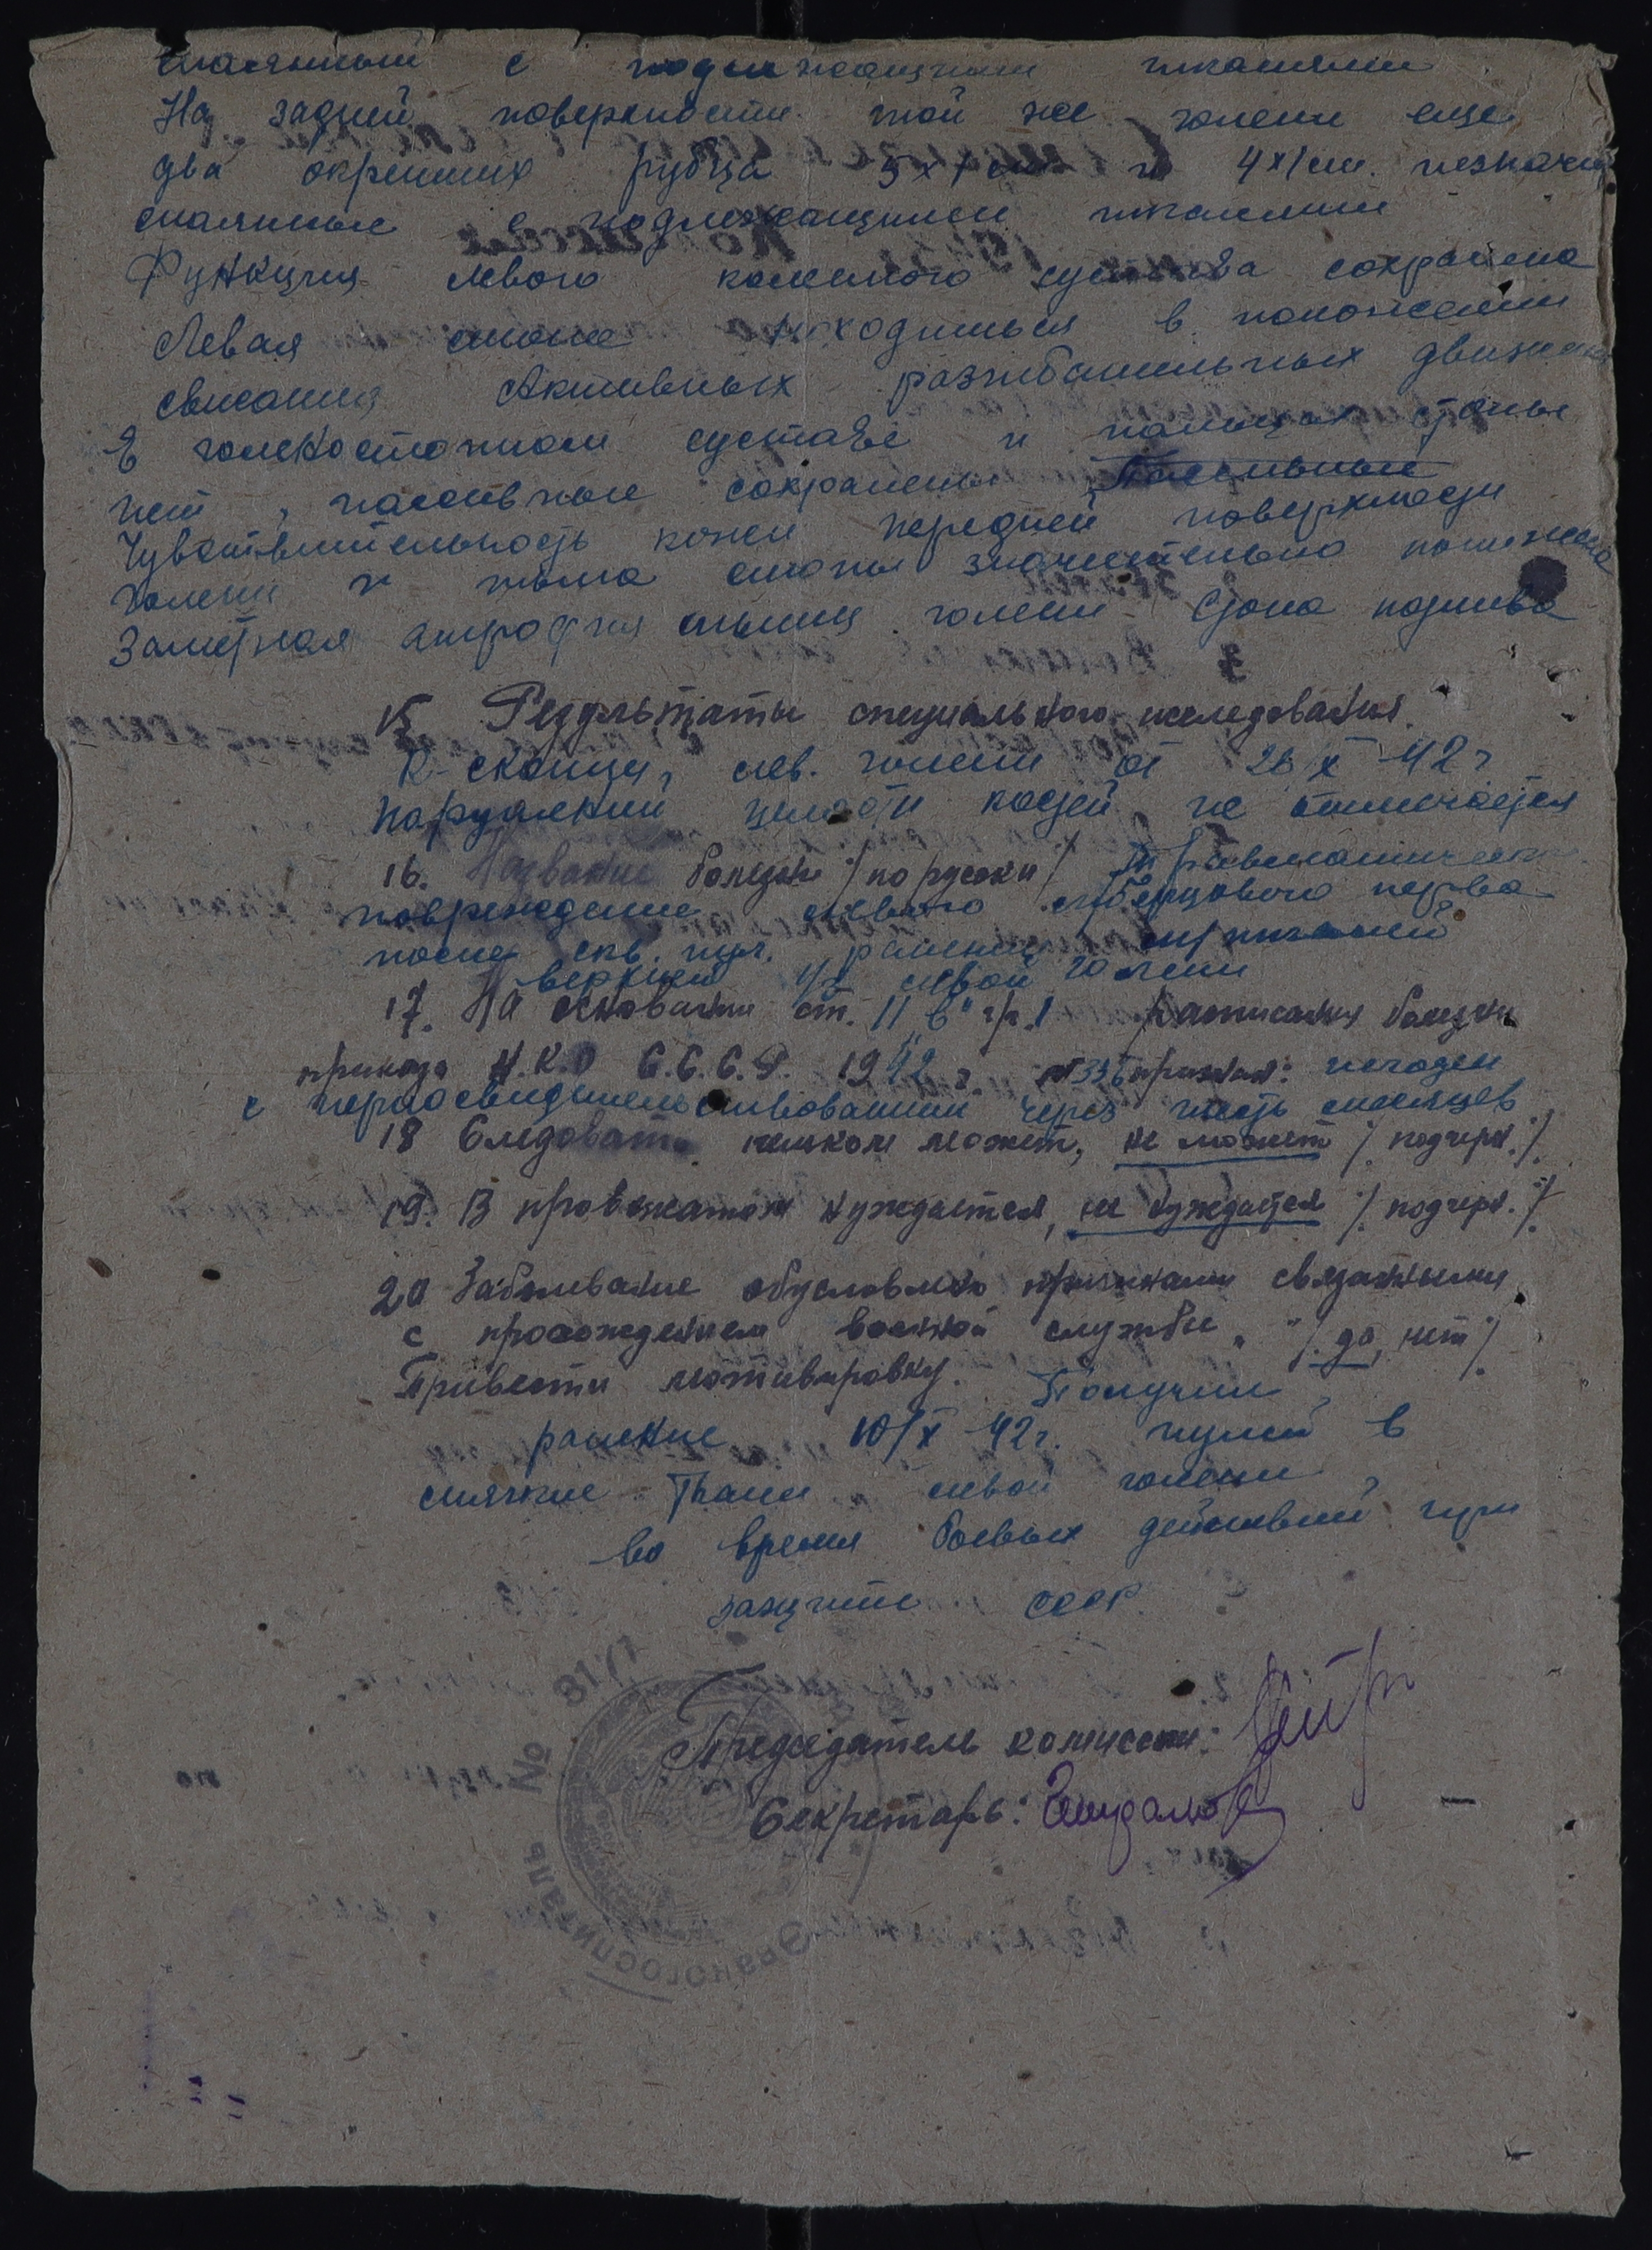 спаянный с подлежащими тканями
На задней поверхности той же голени еще
два окрепших рубца 5х1 см и 4х1 см. незнач.
спаянные с подлежащими тканями
Функция левого коленного сустава сохранена
Левая стопа находиться в положении
свисания Активных разгибательных движений
в голеностопном суставе и пальцах стопы
нет, пассивные сохранены Пассивные
Чувствительность кожи передней поверхности
голени и тыла стопы значительно понижена
Заметная атрофия мышц голени Стопа
15 Результаты специального исследования.
R-скопия, лев. голени от 26/X-42 г
Нарушений целости костей не отмечается
16. Название болезни /по русски/ Травматическ.
повреждение левого м/берцового нерва
после скв. пул. ранения м/тканей
верхней 1/3 левой голени
17. На основании ст. 11 "в" гр. I расписания болезни
приказа Н.К.О С.С.С.Р. 1942 г. №336 признан: негоден
с переосвидетельствованием через шесть месяцев
18 Следовать пешком может, не может /подчерк./
19. В провожатом нуждается, не нуждается /подчерк./
20 Заболевание обусловлено причинами связанными
с прохождением военной службы " " /да, нет/
Привести мотивировку. Получил
ранение 10/X-42 г. пулей в
мягкие ткани левой голени,
во время боевых действий при
защите СССР
Председатель комиссии:
Секретарь:
Эвакогоспиталь № 3177